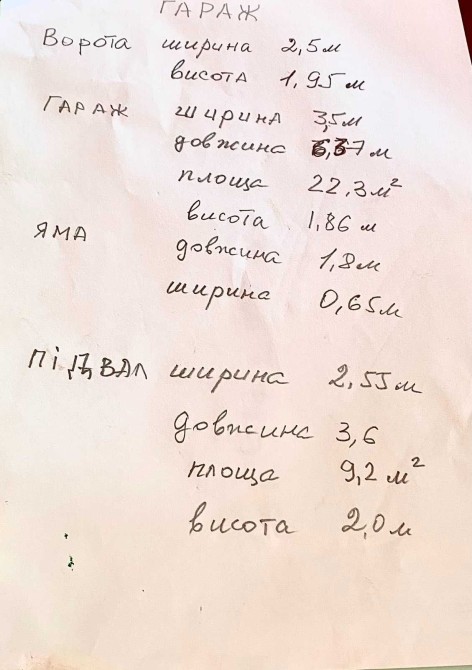 ГАРАЖ
Ворота ширина 2,5м
висота 1,95м
ГАРАЖ ширина 3,5м
довжина 6,37м
площа 22,3м²
висота 1,86м
ЯМА довжина 1,8м
ширина 0,65м
ПІДВАЛ ширина 2,55м
довжина 3,6
площа 9,2м²
висота 2,0м